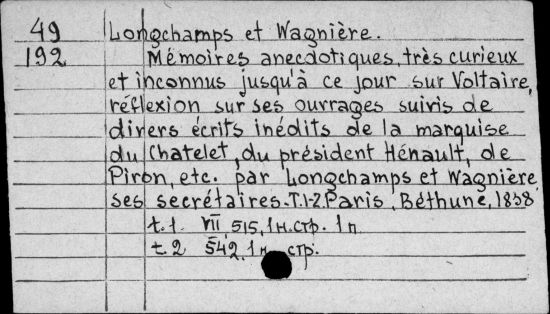 49 Longchamps et Wagnière.
192 Mémoires anecdotiques, très curieux
et inconnus jusqu'à ce jour sur Voltaire,
réflexion sur ses ouvrages suivis de
divers écrits inédits de la marquise
du Chatelet, du président Hénault, de
Piron, etc. par Longchamps et Wagnière,
ses secrétaires. T.1-2. Paris, Béthune, 1838
t.1. VII, 515, 1 н.стр. 1 п
t.2 542, 1 н. стр.